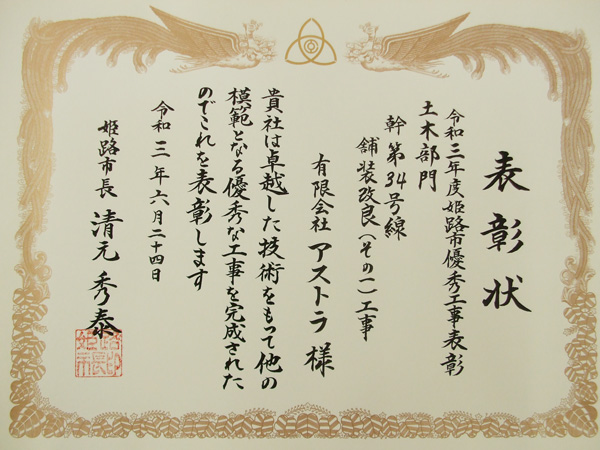 表彰状
令和三年度姫路市優秀工事表彰
土木部門
幹第34号線
舗装改良(その一)工事
有限会社 アストラ 様
貴社は卓越した技術をもって他の
模範となる優秀な工事を完成された
のでこれを表彰します
令和三年六月二十四日
姫路市長 清元秀泰